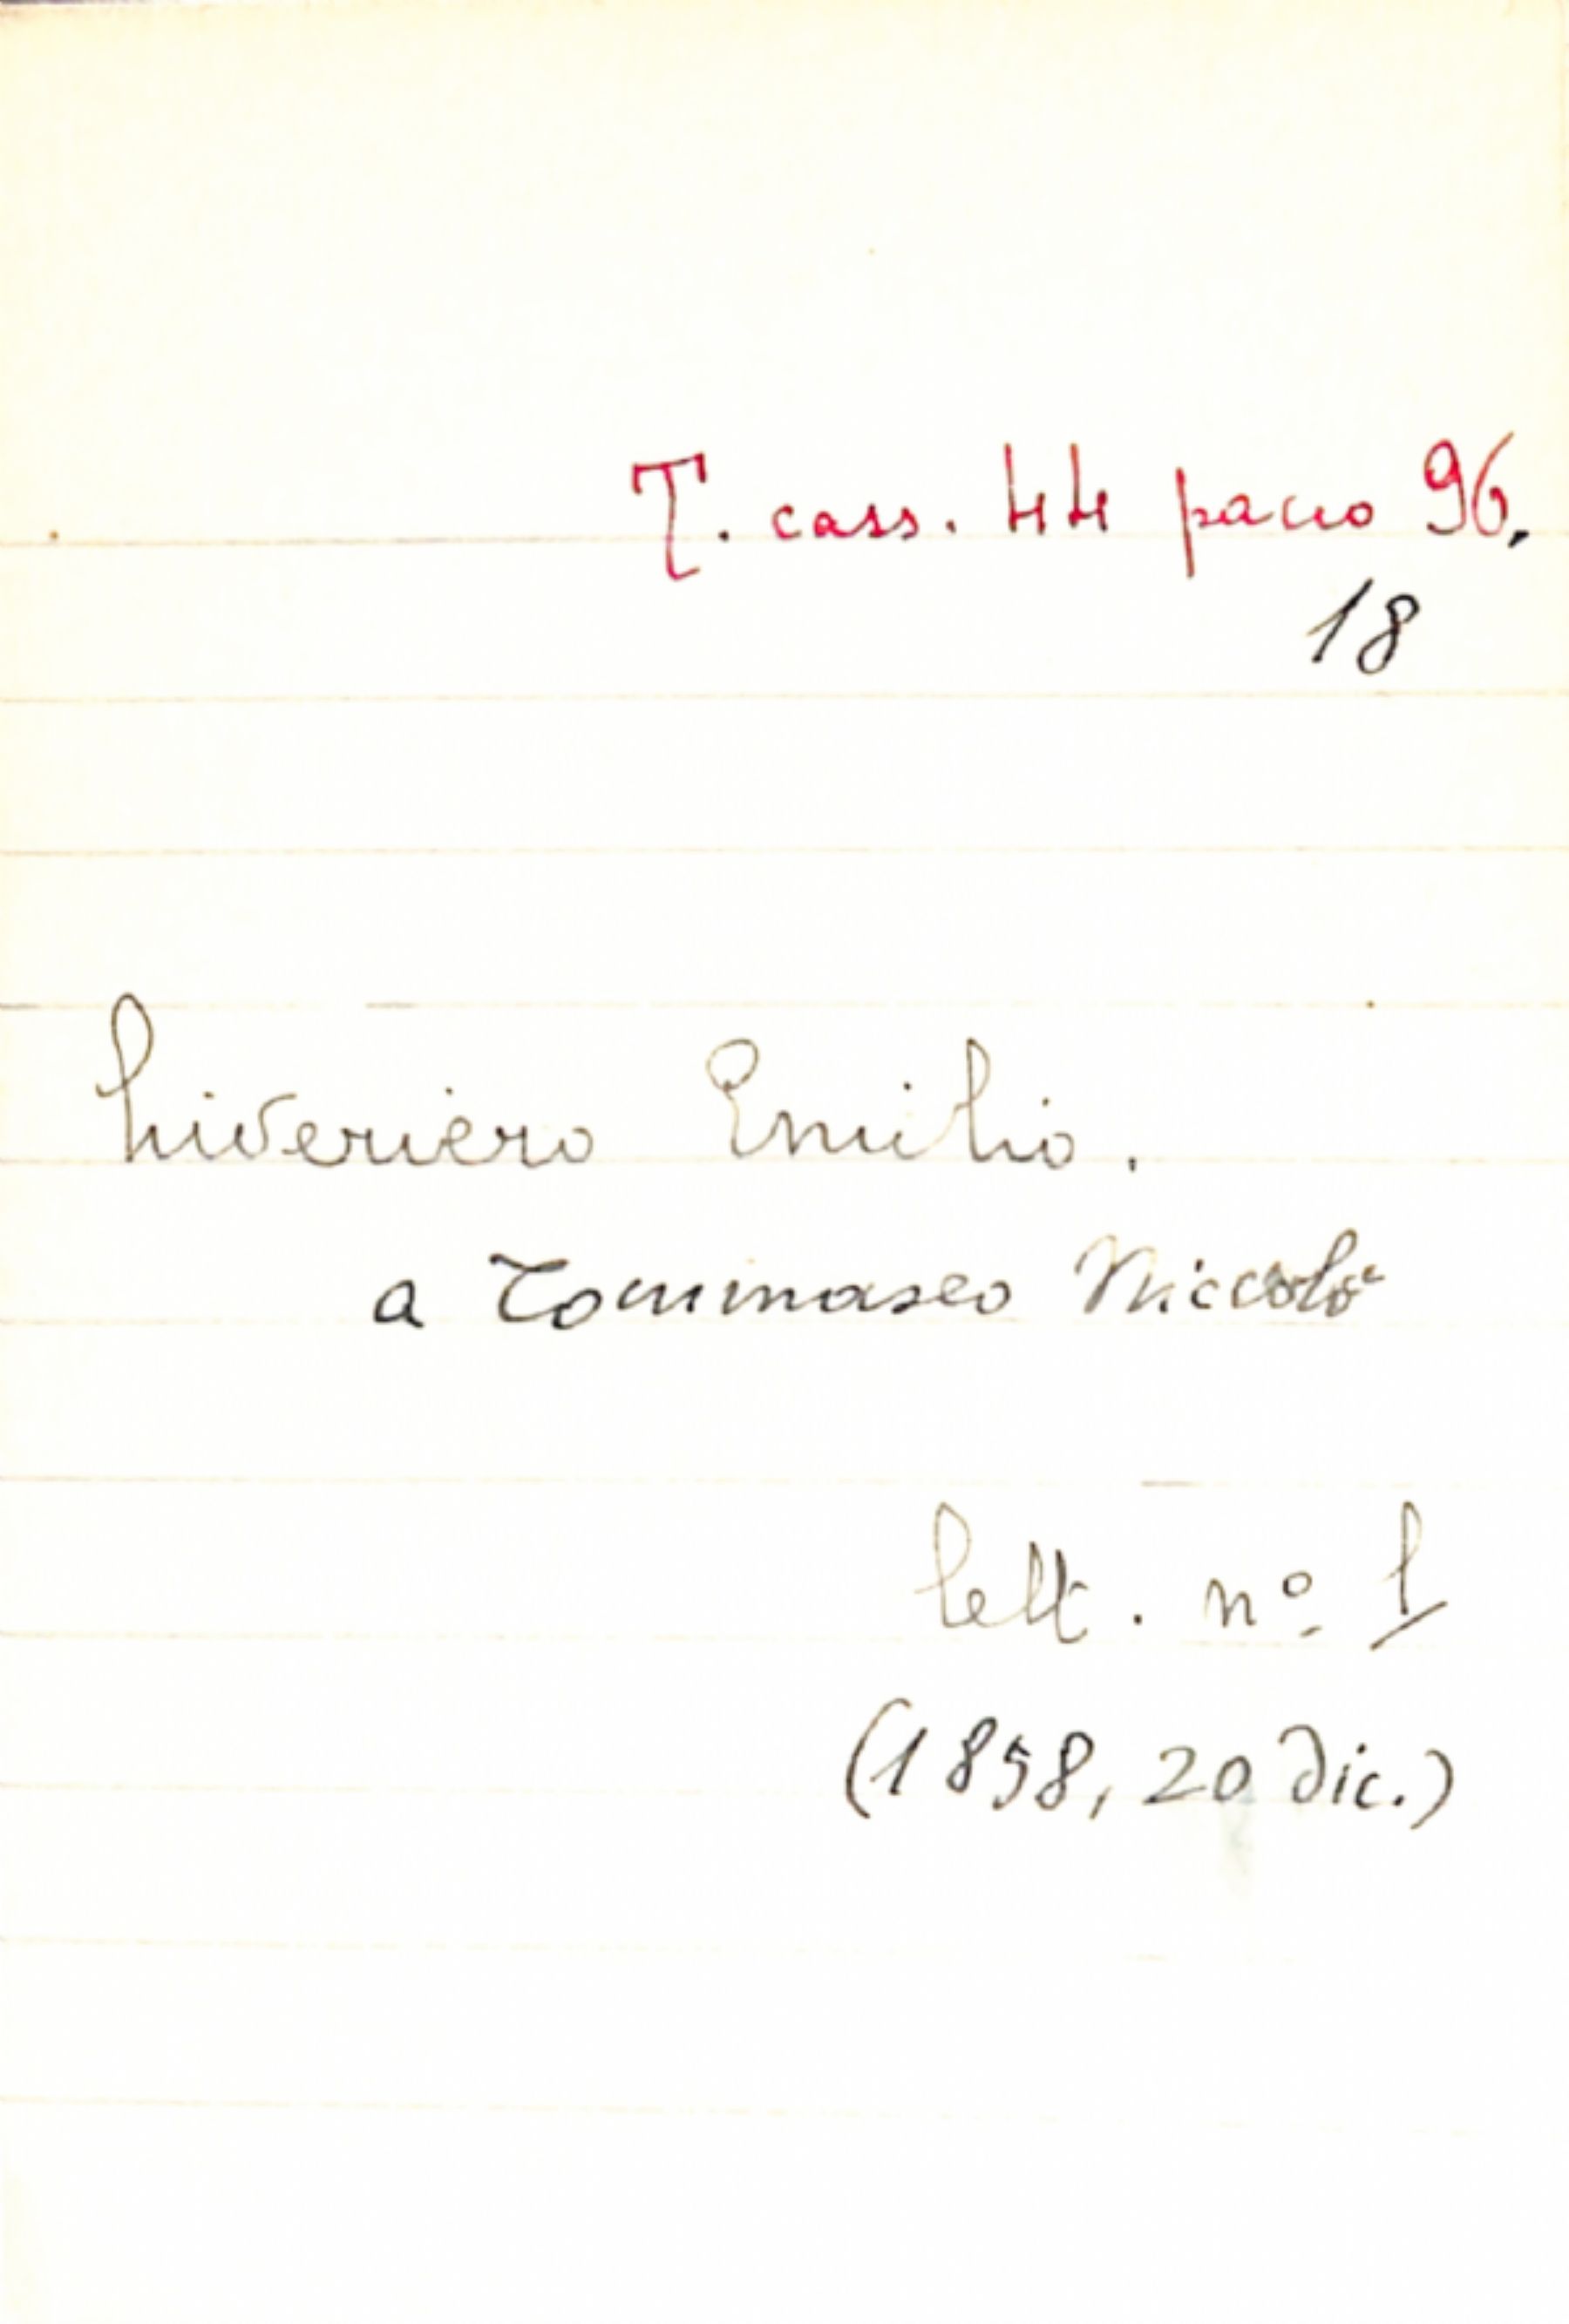 T. cass. 44 pacco 96.
18
Liveriero Emilio.
a Tommaseo Niccolò
lett. nº 1
(1858, 20 dic.)